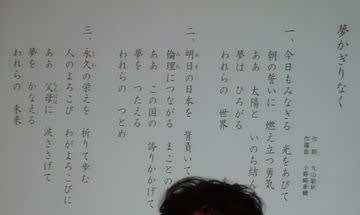 夢かぎりなく
一、今日もみなぎる 光をあびて
朝の誓いに 燃え立つ勇気
ああ 太陽と いのち結んで
夢は ひろがる
われらの 世界
二、明日の日本を 背負いて
倫理につながる まことの
ああ この国の 誇りかかげて
夢を つたえる
われらの つとめ
三、永久の栄えを 祈りて歩む
人のよろこび わがよろこびに
ああ 父母に 涙ささげて
夢を かなえる
われらの 未来